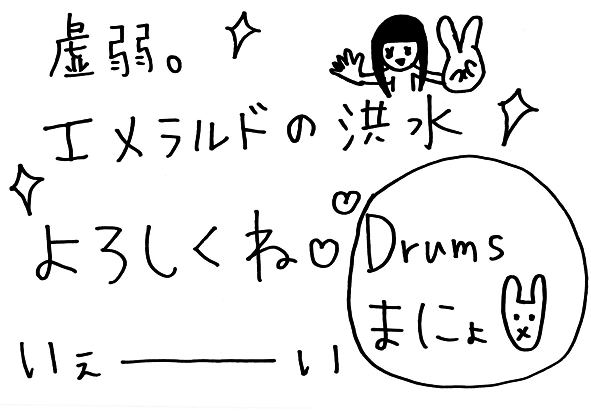 虚弱。
エメラルドの洪水
よろしくね♡
Drums
まにょ
いぇーーい